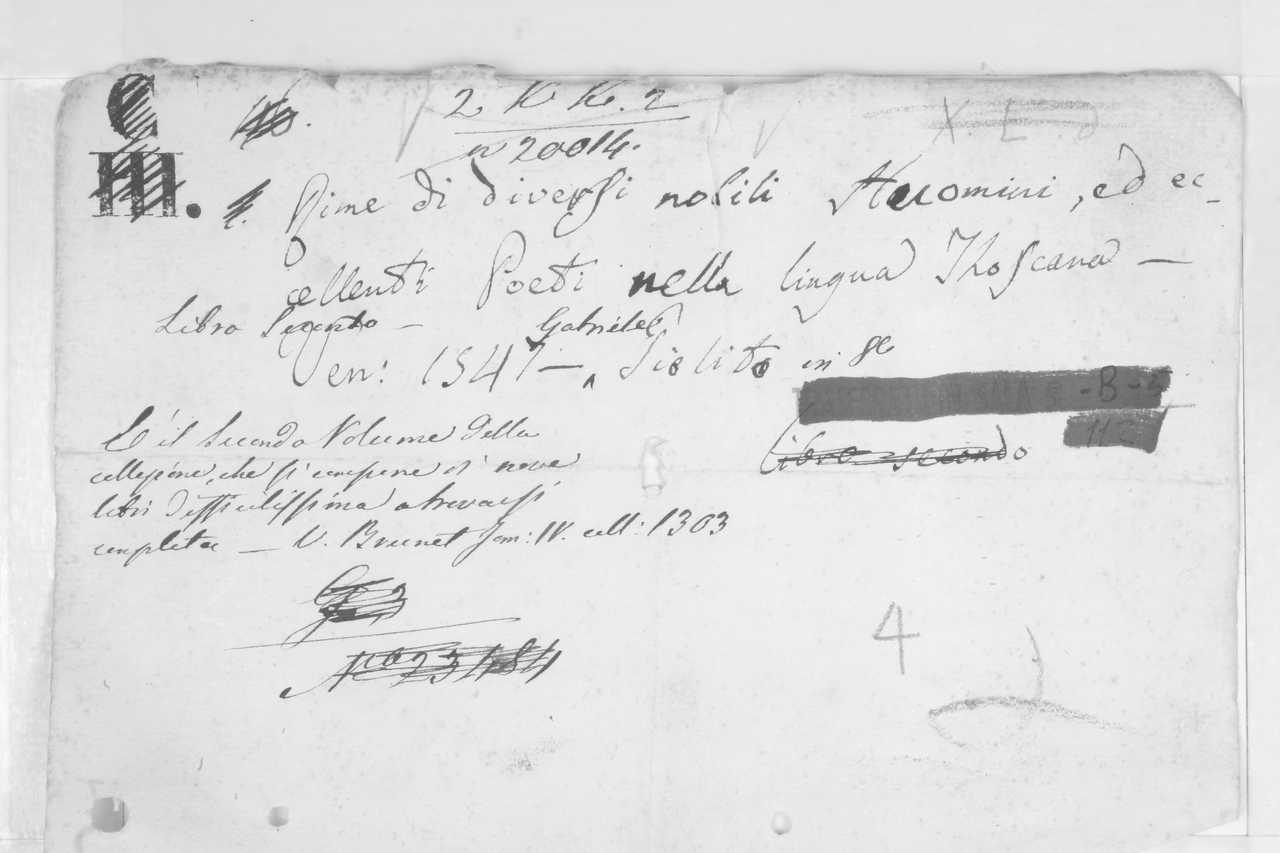 C
III.
2 K K. 2
n 20014.
Rime di diversi nobili Huomini, ed ec-
cellenti Poeti nella lingua Thoscana —
Libro Secondo — Gabriele
Ven: 1547 — Giolito in 8º
- B -
112
Libro secondo
È il secondo Volume della
collezione, che si compone di nove
libri difficilissima a trovarsi
completa — V. Brunet Tom: IV. coll: 1303
Nco 23484
4